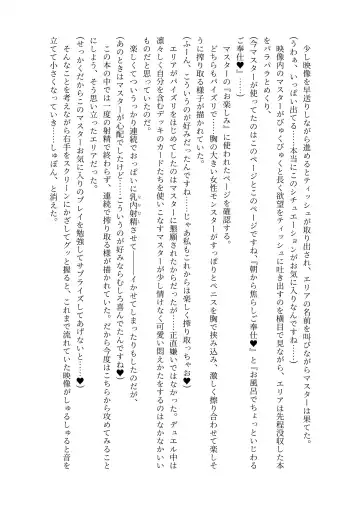 少し映像を早送りしながら進めるとティッシュが取り出され、エリアの名前を叫びながらマスターは果てた。
(うわぁ、いっぱい出てる……本当にこのシチュエーションがお気に入りなんですね……)
映像内のマスターがびゅくびゅくと長く欲望をティッシュに吐き出すのを横目で見ながら、エリアは先程没収した本をパラパラとめくり、
(今マスターが使ってたのはこのページとこのページですね、『朝から焦らしご奉仕♥』と『お風呂でちょっといじわるご奉仕♥』)
マスターの『お楽しみ』に使われたページを確認する。
どちらもパイズリで……胸の大きい女性モンスターがすっぽりとペニスを胸で挟み込み、激しく擦り合わせて楽しそうに搾り取る様子が描かれていた。
(ふーん、こういうのが好みだったんですね……じゃあ私もこれから楽しく搾り取っちゃお♥)
エリアがパイズリをはじめてしたのはマスターに懇願されたからだったが……正直嫌いではなかった。デュエル中は凛々しく自分を含むデッキのカードたちを使いこなすマスターが少し情けなく可愛い悶えかたをするのはなかなかいいものだと思っていたのだ。
楽しくてついうっかり連続でおっぱいに乳内射精させて――イかせてしまったりもしたのだが、
(あのときはマスターが心配でしたけど……こういうのが好みならむしろ喜んでたんですね♥)
この本の中では一度の射精で終わらず、連続で搾り取る様が描かれていた。だから今度はこちらから攻めてみることにしよう、そう思い立ったエリアだった。
(せっかくだからこのマスターお気に入りのプレイを勉強してサプライズしてあげないと……♥)
そんなことを考えながら右手をスクリーンにかざしてグッと握ると、これまで流れていた映像がしゅるしゅると音を立てて小さくなっていき……しゅぽん、と消えた。